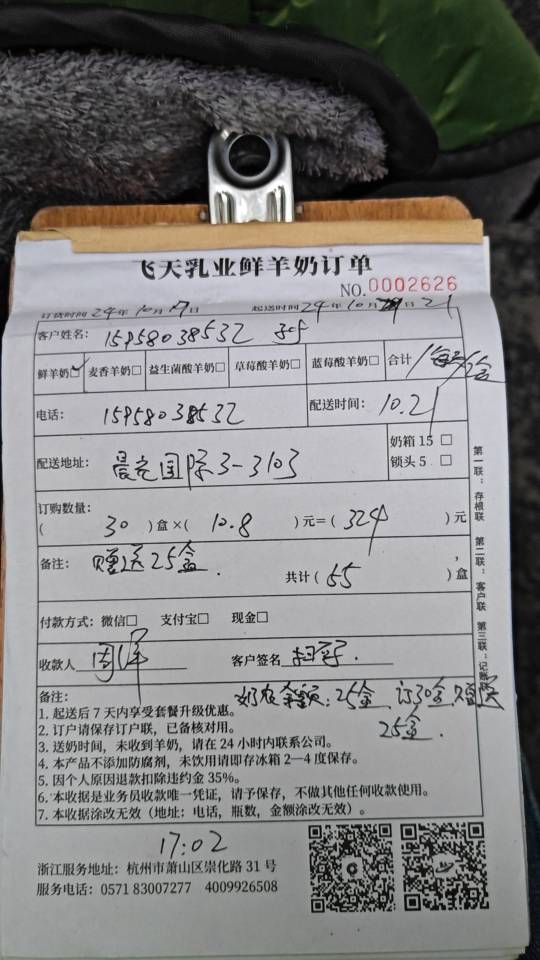 飞天乳业鲜羊奶订单
NO.0002626
订货时间 24年10月17日 起送时间 24年10月21
客户姓名: 15958038532
鲜羊奶☑ 麦香羊奶□ 益生菌酸羊奶□ 草莓酸羊奶□ 蓝莓酸羊奶□ 合计
电话: 15958038532 配送时间: 10.21
配送地址: 晨光国际3-3103 奶箱 15 □
锁头 5 □
订购数量:
( 30 )盒×( 10.8 )元=( 324 )元
备注: 赠送25盒.
共计( 55 )盒
付款方式: 微信□ 支付宝□ 现金□
收款人 周 客户签名
备注: 25盒 订30盒 赠送
25盒.
1. 起送后 7 天内享受套餐升级优惠。
2. 订户请保存订户联，已备核对用。
3. 送奶时间，未收到羊奶，请在 24 小时内联系公司。
4. 本产品不添加防腐剂，未饮用请即存冰箱 2—4 度保存。
5. 因个人原因退款扣除违约金 35%。
6. 本收据是业务员收款唯一凭证，请予保存，不做其他任何收款使用。
7. 本收据涂改无效（地址: 电话，瓶数，金额涂改无效）。
第一联: 存根联 第二联: 客户联 第三联: 记账联
17:02
浙江服务地址: 杭州市萧山区崇化路 31 号
服务电话: 0571 83007277 4009926508